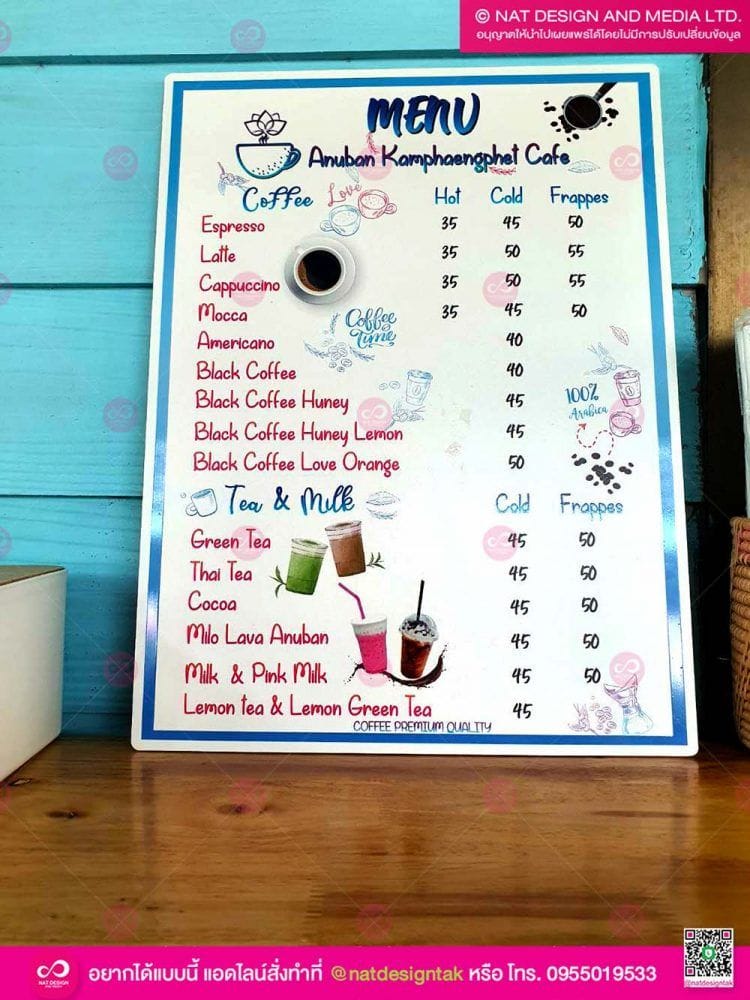 © NAT DESIGN AND MEDIA LTD.
อนุญาตให้นำไปเผยแพร่ได้โดยไม่มีการปรับเปลี่ยนข้อมูล
MENU
Anuban Kamphaengphet Cafe
Coffee Love Hot Cold Frappes
Espresso 35 45 50
Latte 35 50 55
Cappuccino 35 50 55
Mocca 35 45 50
Coffee Time
Americano 40
Black Coffee 40
Black Coffee Huney 45
100% Arabica
Black Coffee Huney Lemon 45
Black Coffee Love Orange 50
Tea & Milk Cold Frappes
Green Tea 45 50
Thai Tea 45 50
Cocoa 45 50
Milo Lava Anuban 45 50
Milk & Pink Milk 45 50
Lemon tea & Lemon Green Tea 45
COFFEE PREMIUM QUALITY
NAT DESIGN
อยากได้แบบนี้ แอดไลน์สั่งทำที่ @natdesigntak หรือ โทร. 0955019533
@natdesigntak